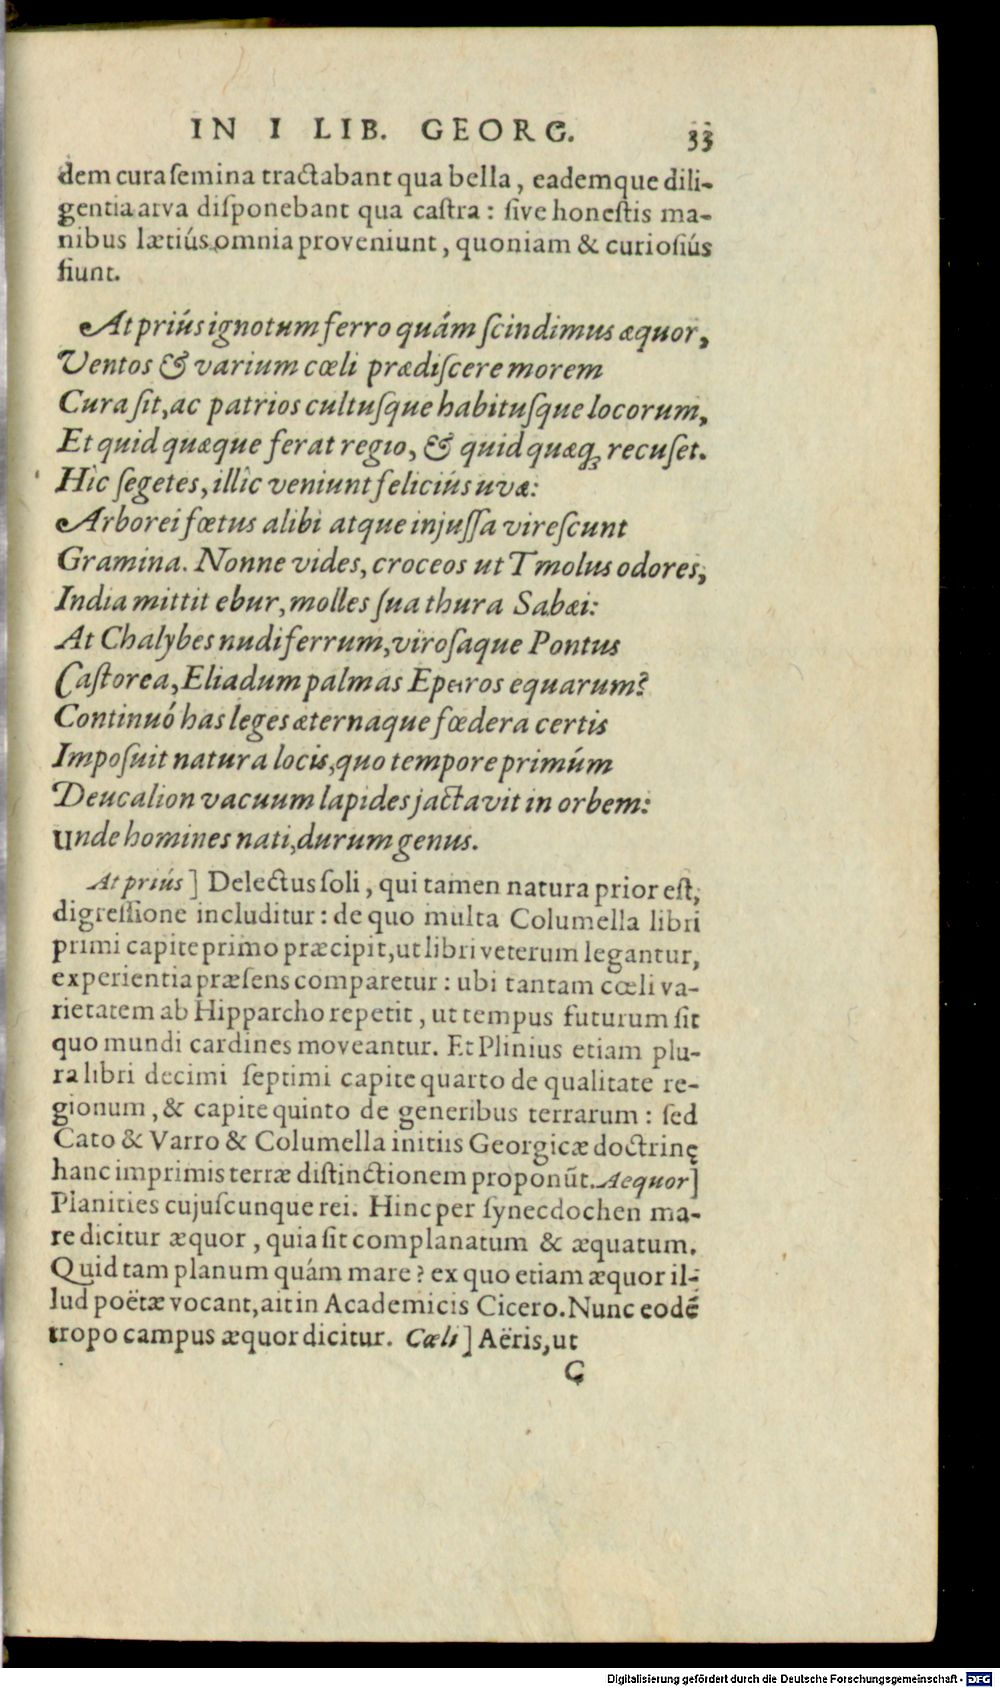 IN I LIB. GEORG. 33
dem cura ſemina tractabant qua bella, eademque dili-
gentia arva diſponebant qua caſtra: ſive honeſtis ma-
nibus lætiús omnia proveniunt, quoniam & curioſiús
fiunt.
At priús ignotum ferro quám ſcindimus æquor,
Ventos & varium cœli prædiſcere morem
Cura ſit, ac patrios cultuſque habituſque locorum,
Et quid quæque ferat regio, & quid quæq; recuſet.
Hîc ſegetes, illîc veniunt feliciús uvæ:
Arborei fœtus alibi atque injuſſa vireſcunt
Gramina. Nonne vides, croceos ut Tmolus odores,
India mittit ebur, molles ſua thura Sabæi:
At Chalybes nudi ferrum, viroſaque Pontus
Caſtorea, Eliadum palmas Epeiros equarum?
Continuó has leges æternaque fœdera certis
Impoſuit natura locis, quo tempore primúm
Deucalion vacuum lapides jactavit in orbem:
Unde homines nati, durum genus.
At priús] Delectus ſoli, qui tamen natura prior eſt,
digreſſione includitur: de quo multa Columella libri
primi capite primo præcipit, ut libri veterum legantur,
experientia præſens comparetur: ubi tantam cœli va-
rietatem ab Hipparcho repetit, ut tempus futurum ſit
quo mundi cardines moveantur. Et Plinius etiam plu-
ra libri decimi ſeptimi capite quarto de qualitate re-
gionum, & capite quinto de generibus terrarum: ſed
Cato & Varro & Columella initiis Georgicæ doctrinę
hanc imprimis terræ diſtinctionem proponūt. Aequor]
Planities cujuſcunque rei. Hinc per ſynecdochen ma-
re dicitur æquor, quia ſit complanatum & æquatum.
Quid tam planum quám mare? ex quo etiam æquor il-
lud poëtæ vocant, ait in Academicis Cicero. Nunc eodē
tropo campus æquor dicitur. Cœli] Aëris, ut
C
Digitalisierung gefördert durch die Deutsche Forschungsgemeinschaft - DFG